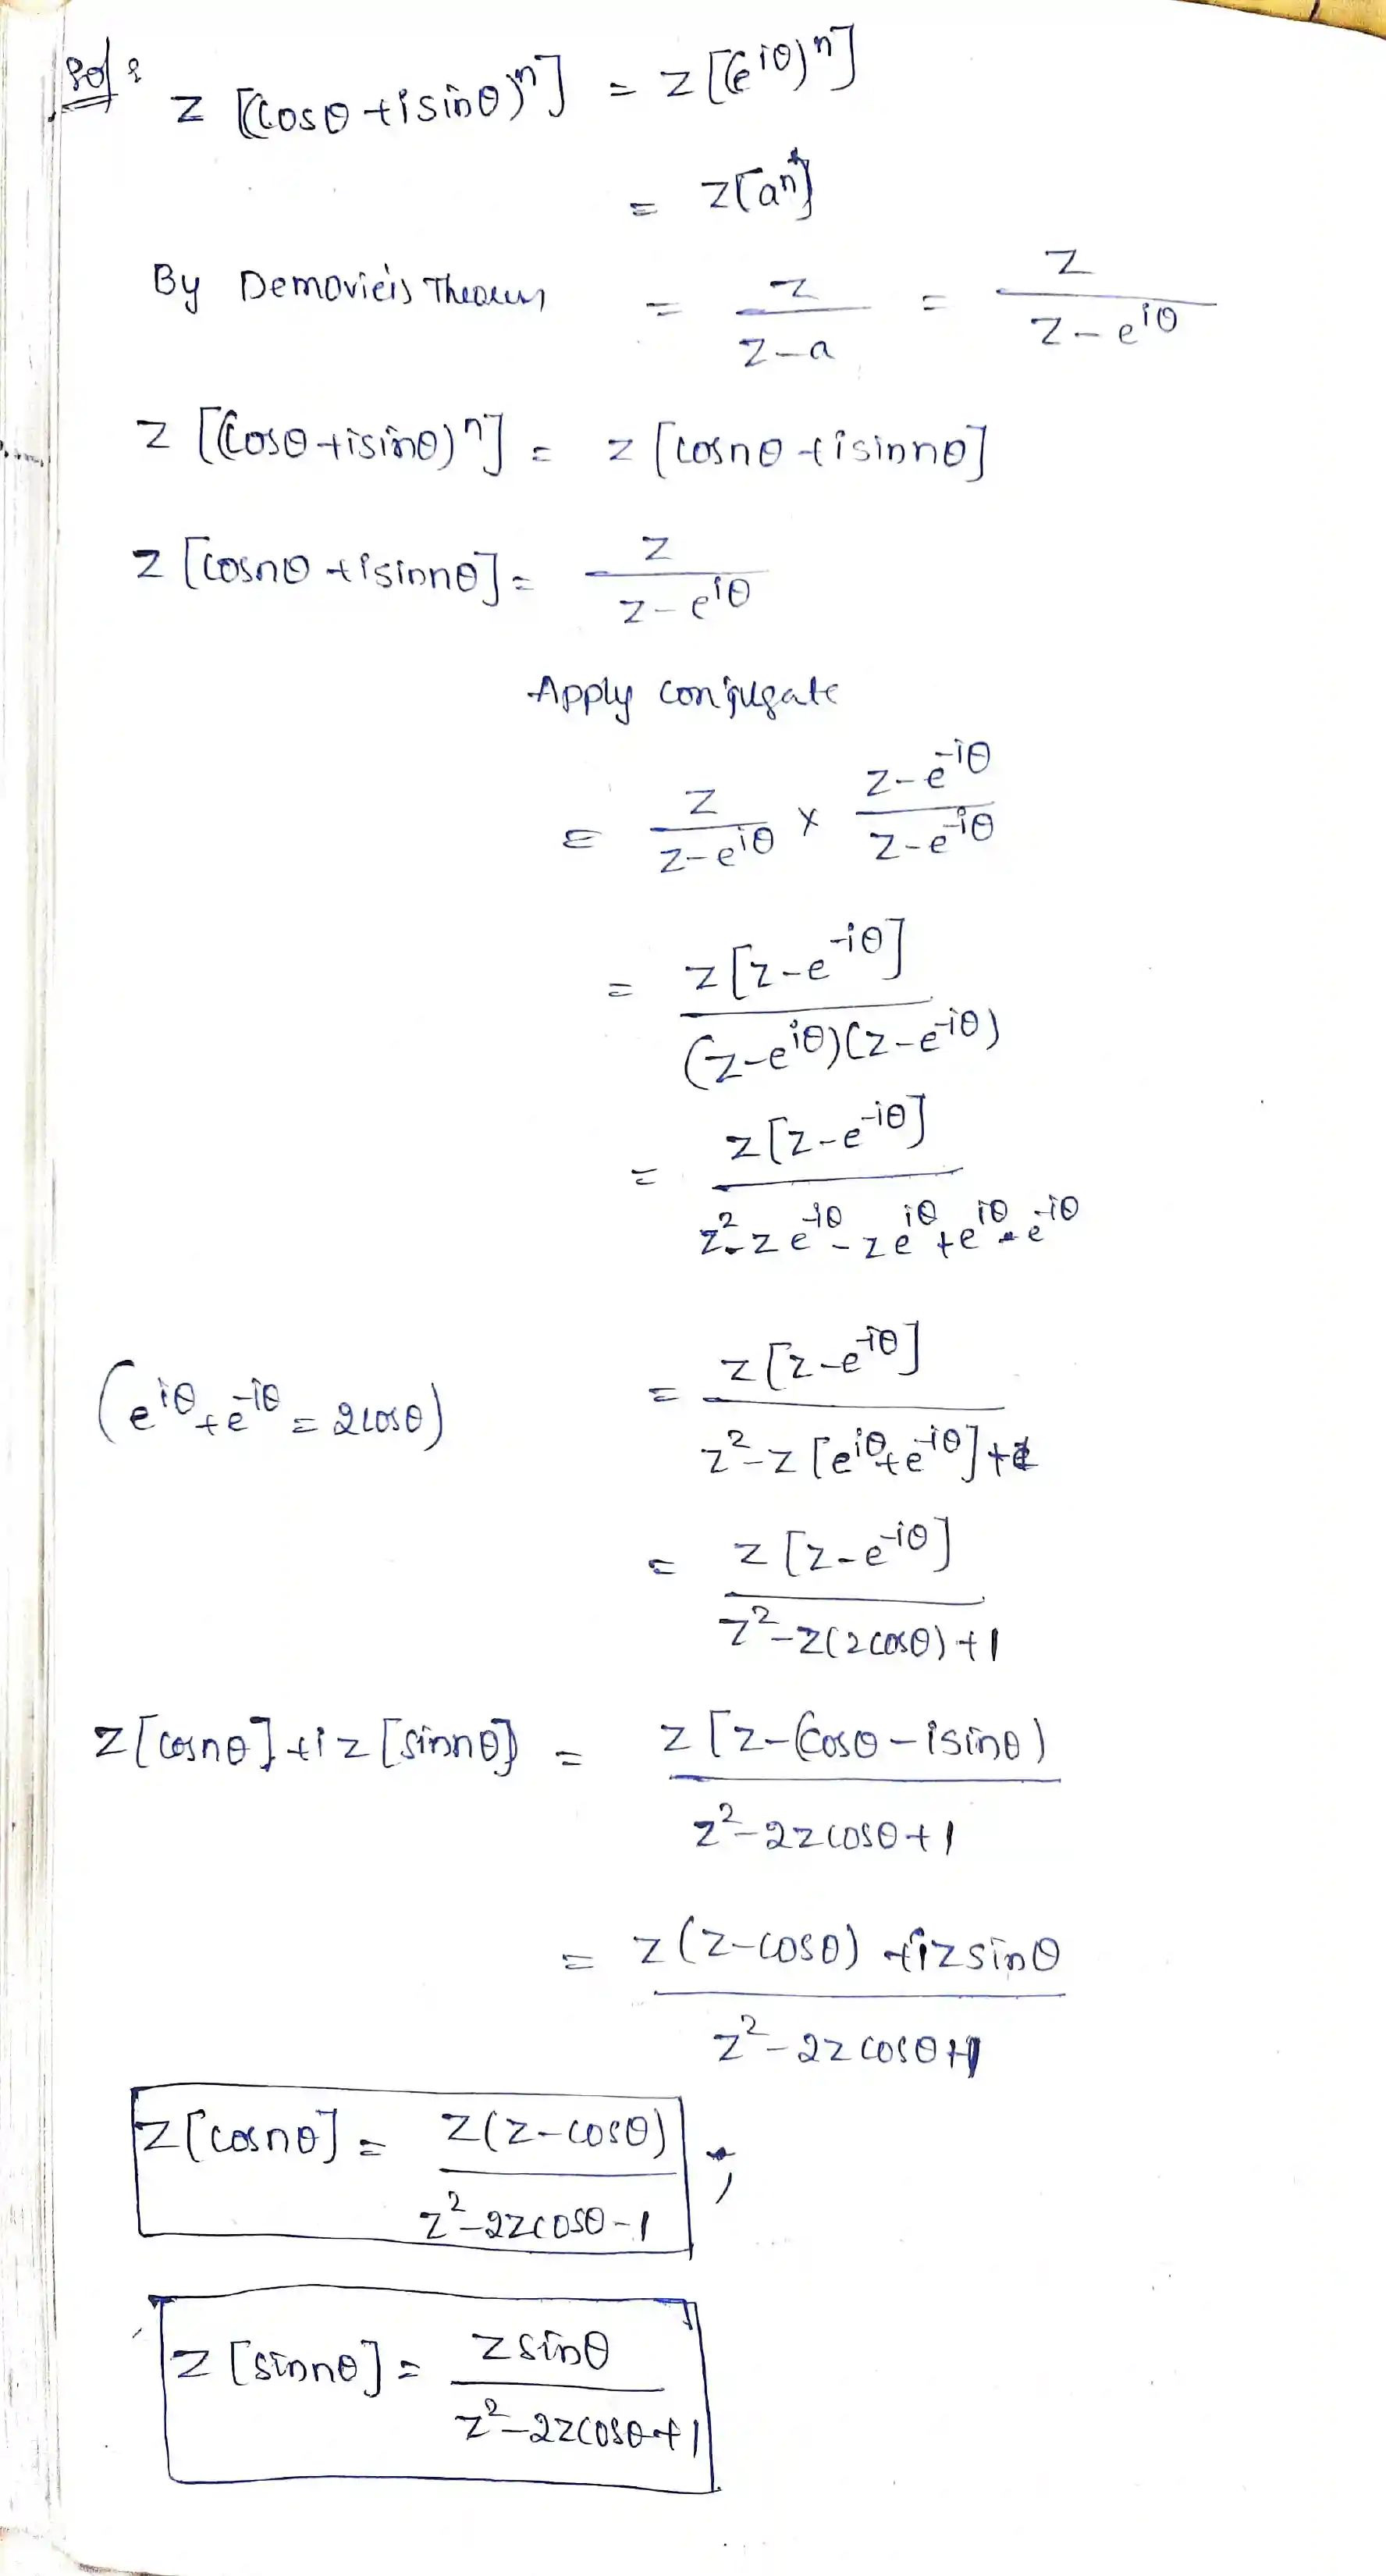 Sol :
Z [(cosθ + isinθ)ⁿ] = Z [(e^{iθ})ⁿ]
= Z[aⁿ]
By Demovieis Theorem = z/(z-a) = z/(z-e^{iθ})
Z [(cosθ + isinθ)ⁿ] = Z [cosnθ + isinnθ]
Z [cosnθ + isinnθ] = z/(z-e^{iθ})
Apply conjugate
= z/(z-e^{iθ}) × (z-e^{-iθ})/(z-e^{-iθ})
= z[z-e^{-iθ}]/((z-e^{iθ})(z-e^{-iθ}))
= z[z-e^{-iθ}]/(z²-ze^{-iθ}-ze^{iθ}+e^{iθ}·e^{-iθ})
(e^{iθ}+e^{-iθ} = 2cosθ) = z[z-e^{-iθ}]/(z²-z[e^{iθ}+e^{-iθ}]+1)
= z[z-e^{-iθ}]/(z²-z(2cosθ)+1)
Z[cosnθ]+iZ[sinnθ] = z[z-(cosθ-isinθ)/(z²-2zcosθ+1)
= (z(z-cosθ)+izsinθ)/(z²-2zcosθ+1)
Z[cosnθ] = z(z-cosθ)/(z²-2zcosθ-1) ;
Z[sinnθ] = zsinθ/(z²-2zcosθ+1)